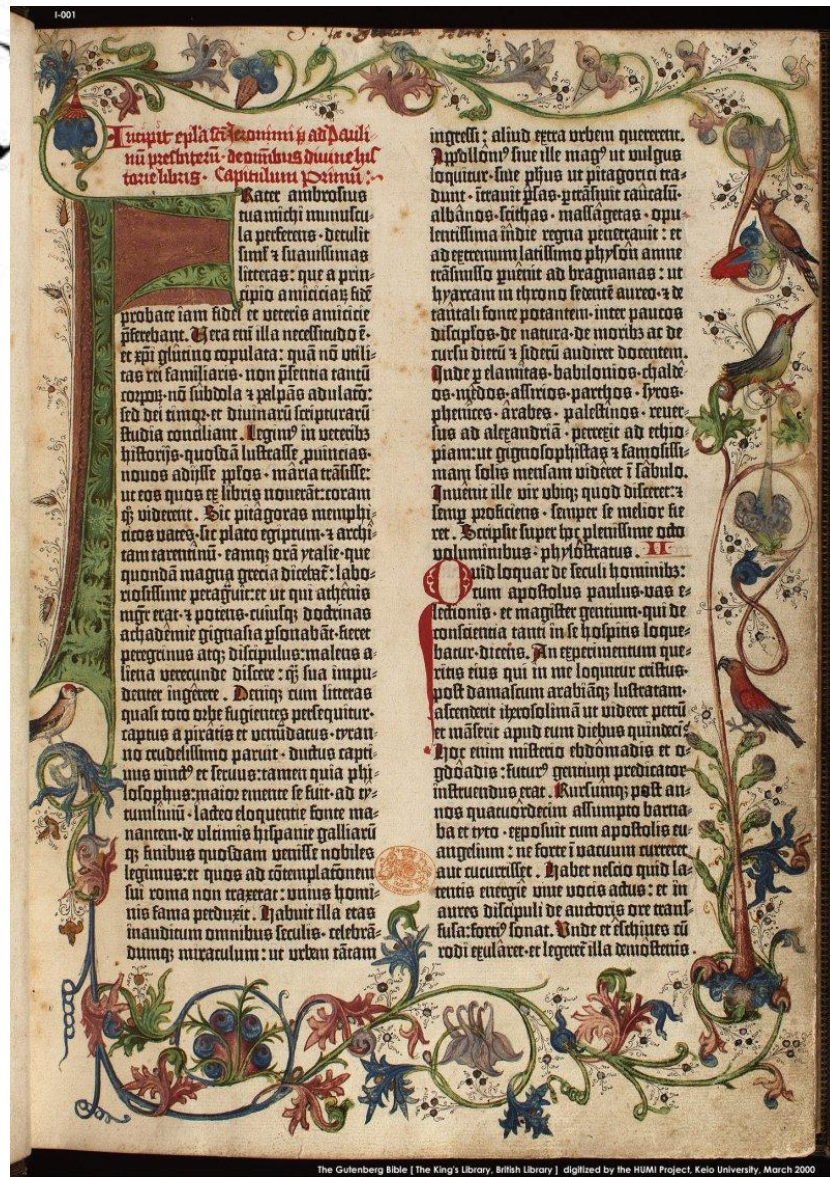 I-001
Incipit epla sci Jeronimi p̄ ad Pauli-
nū presbiterū · de omībus diuine his-
torie libris · Capitulum Primū:
Frater ambrosius
tua michi munuscu-
la perferens · detulit
simł ⁊ suauissimas
litteras: que a prin-
cipio amiciciaꝝ fidē
probate iam fidei et veteris amicicie
p̄ferebant. Uera eni illa necessitudo ē·
et xp̄i glutino copulata: quā nō utili-
tas rei familiaris· non p̄sentia tantū
corpoꝝ· nō subdola ⁊ palpās adulaто:
sed dei timor· et diuinarū scripturarū
studia conciliant. Legimꝰ in veteribꝫ
historijs· quosdā lustrasse ꝓuincias·
nouos adijsse pp̄los · maria trāsisse:
ut eos quos ex libris nouerāt: coram
qꝫ viderent. Sic pitagoras memphi-
ticos vates· sic plato egiptum· ⁊ archi-
tam tarentinū· eamqꝫ orā ytalie· que
quondā magna grecia diceba͛t: labo-
riosissime peragͥuit: et ut qui athenis
mgr̄ erat· ⁊ potens· cuiusqꝫ doctrinas
achademie gignasia ꝑsonabāt· fieret
peregrinus atqꝫ discipulus: malens a-
liena verecunde discere: qꝫ sua impu-
denter ingerere. Deniqꝫ cum litteras
quasi toto orbe fugientes persequitur·
captus a piratis et venūdatus· tyran-
no crudelissimo paruit· ductus capti-
uus vinctꝰ et seruus: tamen quia phi-
losophus: maior emente se fuit· ad ty-
tumliuiū · lacteo eloquentie fonte ma-
nantem· de ultimis hispanie galliarū
qꝫ finibus quosdam venisse nobiles
legimus: et quos ad cōtemplatōnem
sui roma non traxerat: unius homi-
nis fama perduxit. Habuit illa etas
inauditum omnibus seculis· celebrā-
dumqꝫ miraculum: ut urbem tātam
ingressi: aliud extra urbem quererent.
Appollōniꝰ siue ille magꝰ ut vulgus
loquitur· siue ph̄us ut pitagorici tra-
dunt· ītrauit ꝑsas· ꝑtrāsiuit caucasū·
albānos· scithas· massagetas· opu-
lentissima īndie regna penetrauit: et
ad extremum latissimo physon amne
trāsmisso puēnit ad bragmanas: ut
hyarcam in throno sedentē aureo· ⁊ de
tantali fonte potantem· inter paucos
discip̄los· de natura· de moribꝫ ac de
cursu dierū ⁊ siderū audiret docentem.
Inde ꝑ elamitas· babilonios· chalde-
os· medos· assirios· parthos· syros·
phenices· ārabes· palestinos· reuer-
sus ad alexandriā· perrexit ad ethio-
piam: ut gignosophistas ⁊ famosissi-
mam solis mensam videret ī sabulo.
Inuēnit ille vir ubiqꝫ quod disceret: ⁊
semp̄ proficiens · semper se melior fie
ret. Scripsit super hoc plenissime octo
voluminibus· phylōstratus. II
Quid loquar de seculi hominibꝫ:
cum apostolus paulus· vas e-
lectionis· et magister gentium· qui de
conscientia tanti in se hospitis loque-
batur· dicens. An experimentum que-
ritis eius qui in me loquitur cristus·
post damascum arabiāqꝫ lustratam·
ascenderit iherosolimā ut videret petrū
et māserit apud eum diebus quindecī.
Hoc enim misterio ebdōmadis et o-
gdōadis: futurꝰ gentium predicator
instruendus erat. Rursumqꝫ post an-
nos quatuōrdecim assumpto barna-
ba et tyto· exposuit cum apostolis eu-
angelium: ne forte ī vacuum curreret
aut cucurrisset. Habet nescio quid la-
tentis energie viue vocis actus: et in
aures discipuli de auctoris ore trans-
fusa: fortiꝰ sonat. Unde et eschines cū
rodi exularet· et legeret̄ illa demostenis.
The Gutenberg Bible [ The King's Library, British Library ] digitized by the HUMI Project, Keio University, March 2000